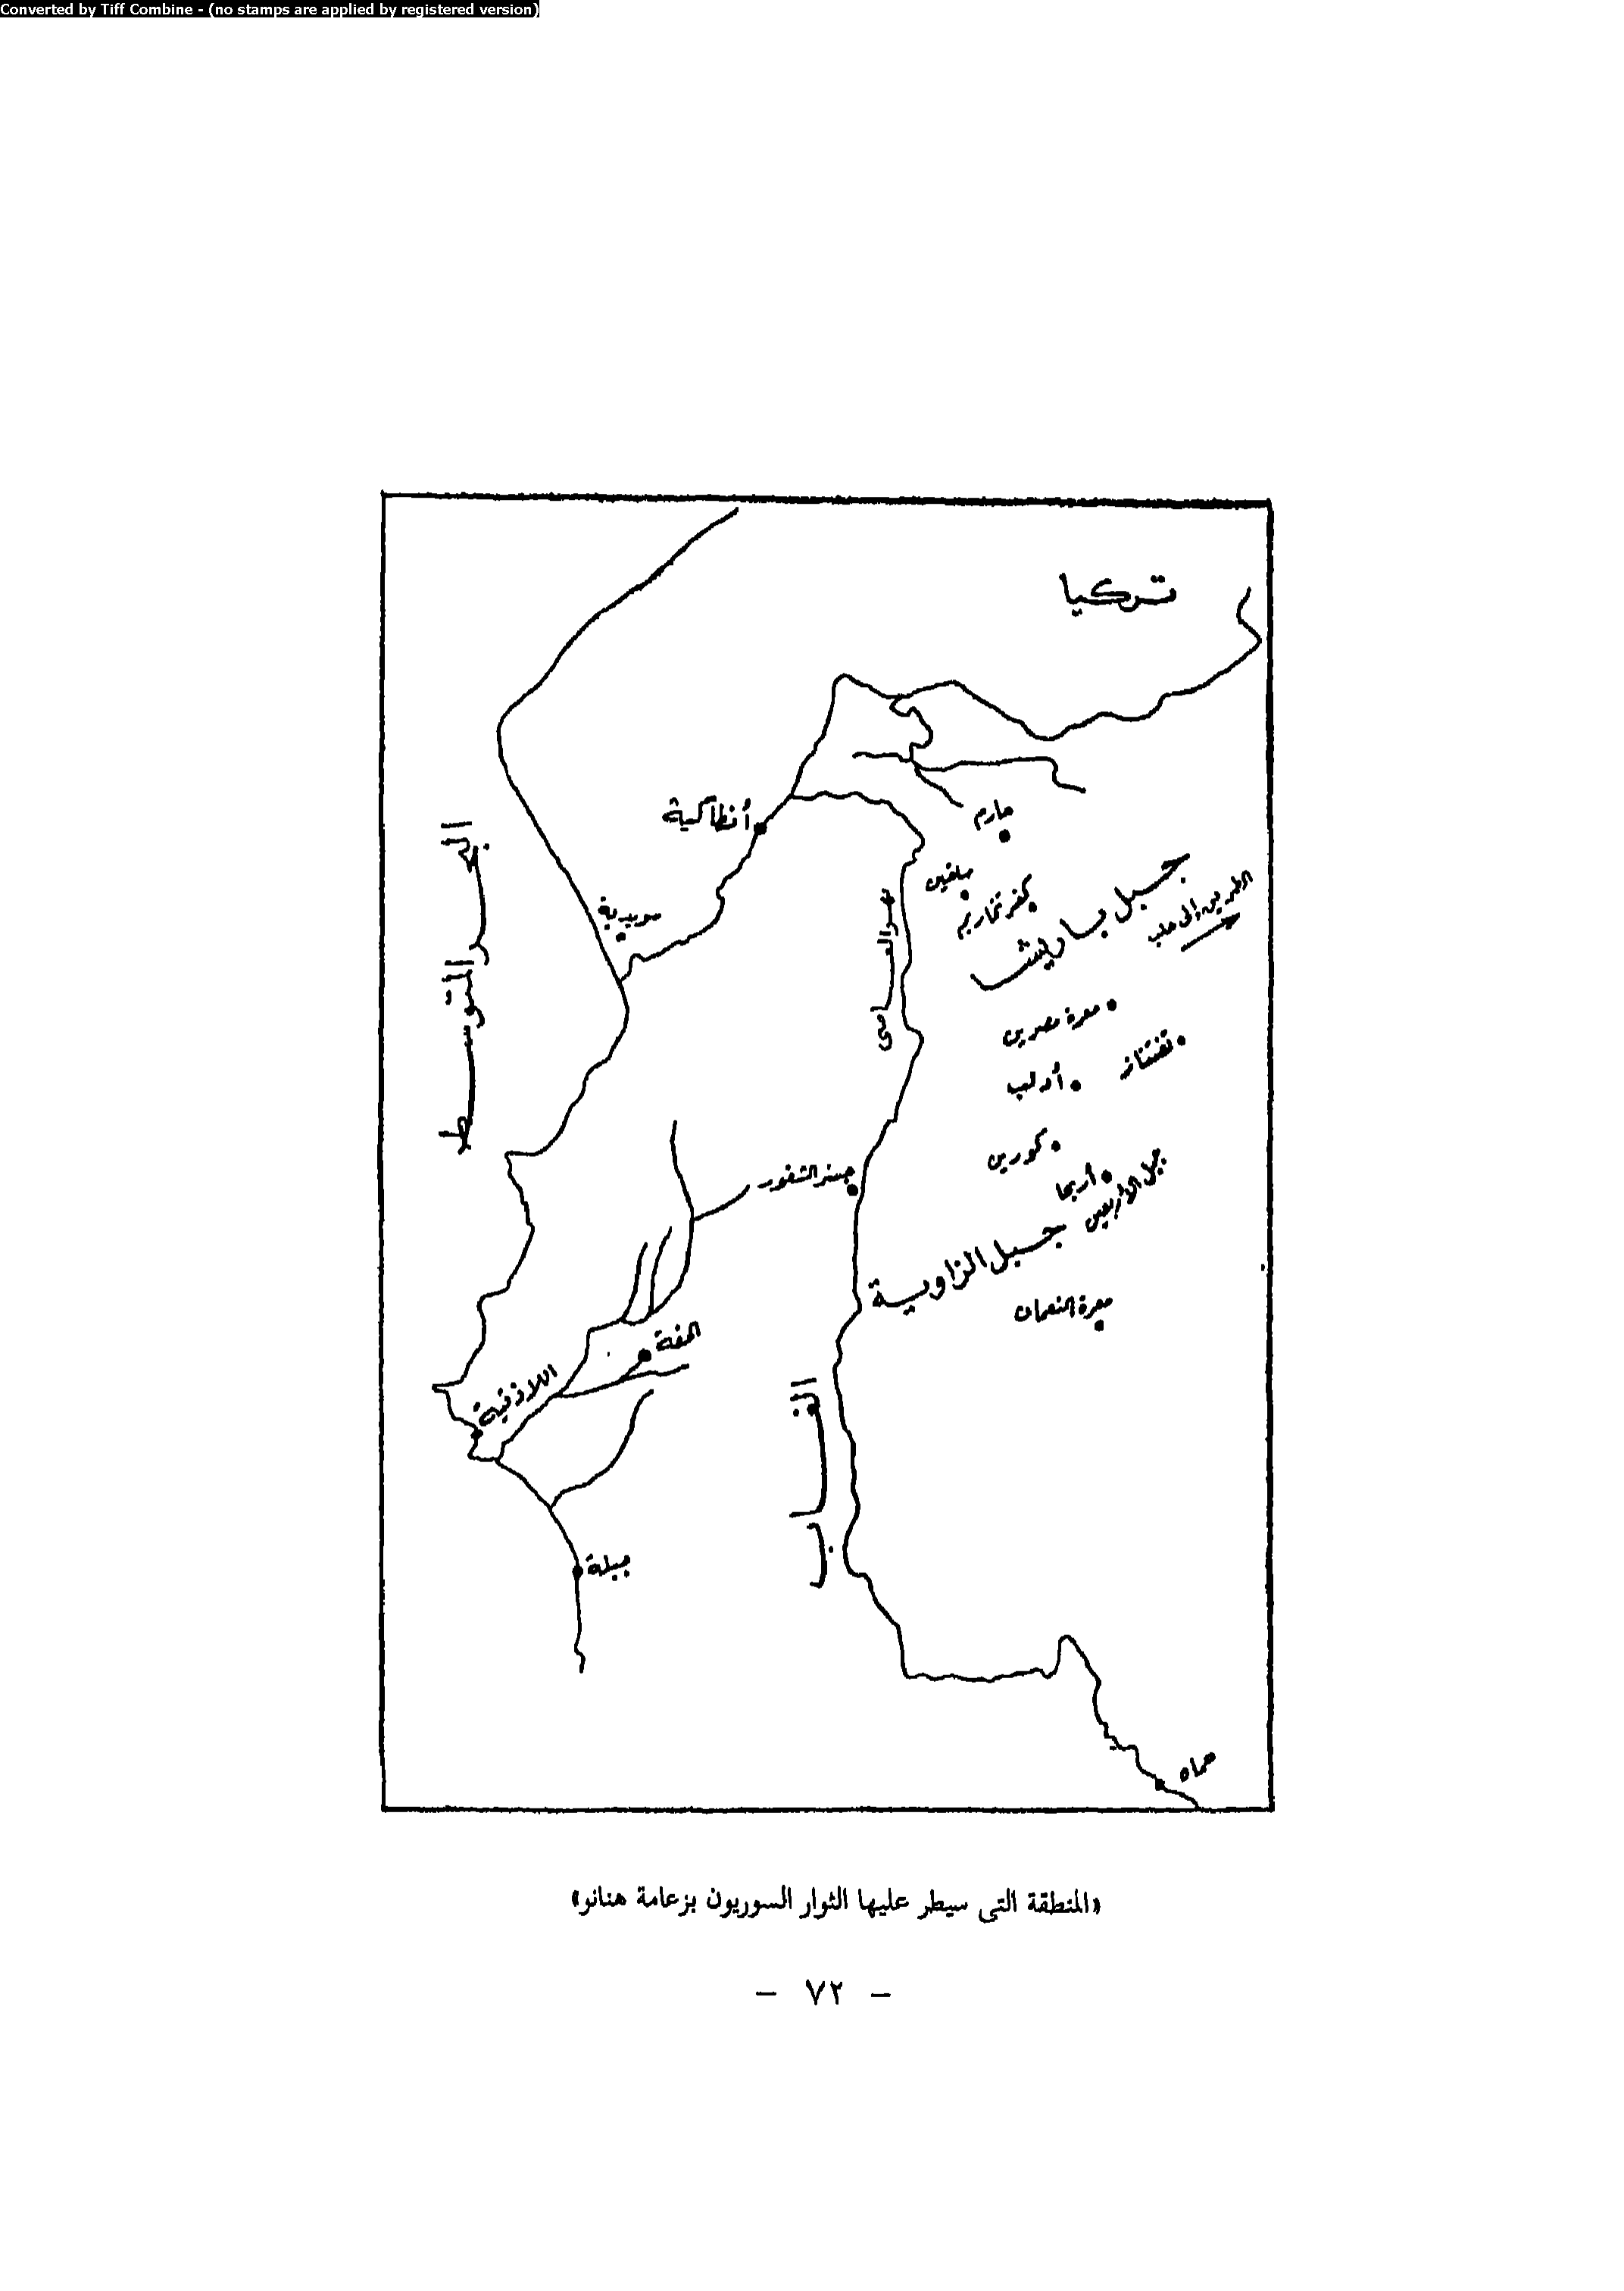 Converted by Tiff Combine - (no stamps are applied by registered version)
تركيا
حارم
أنطاكية
سلقين
كفر تخاريم
جبل باريشا
الطريق إلى حلب
سويدية
البحر المتوسط
نهر العاصي
معرة مصرين
تفتناز
أدلب
كورين
جسر الشغور
أريحا
جبل الأربعين
جبل الزاوية
معرة النعمان
الحفة
اللاذقية
جبلة
حماه
«المنطقة التي سيطر عليها الثوار السوريون بزعامة هنانو»
- ٧٢ -